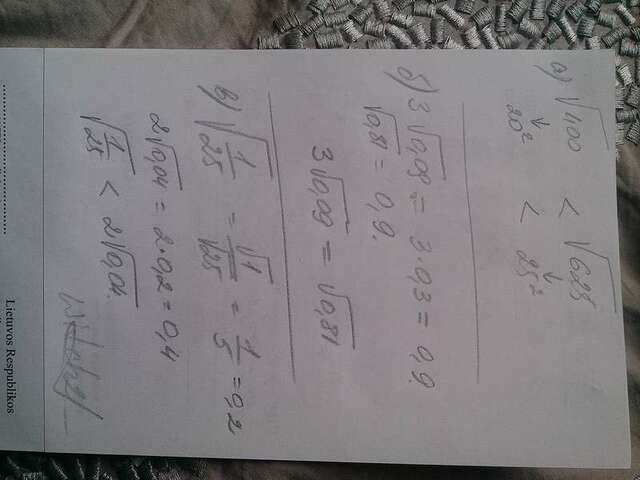 а) √400 < √625
↓ ↓
20² < 25²
б) 3√0,09 = 3·0,3 = 0,9.
√0,81 = 0,9.
3√0,09 = √0,81
в) √1/25 = √1/√25 = 1/5 = 0,2
2√0,04 = 2·0,2 = 0,4
√1/25 < 2√0,04.
Lietuvos Respublikos